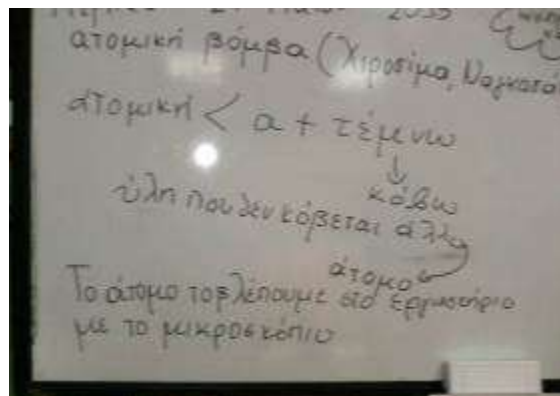 ατομική βόμβα (Χιροσίμα, Ναγκασά
ατομική < α + τέμνω
↓
κόβω
ύλη που δεν κόβεται άλλο
άτομο
Το άτομο το βλέπουμε στο εργαστήριο
με το μικροσκόπιο